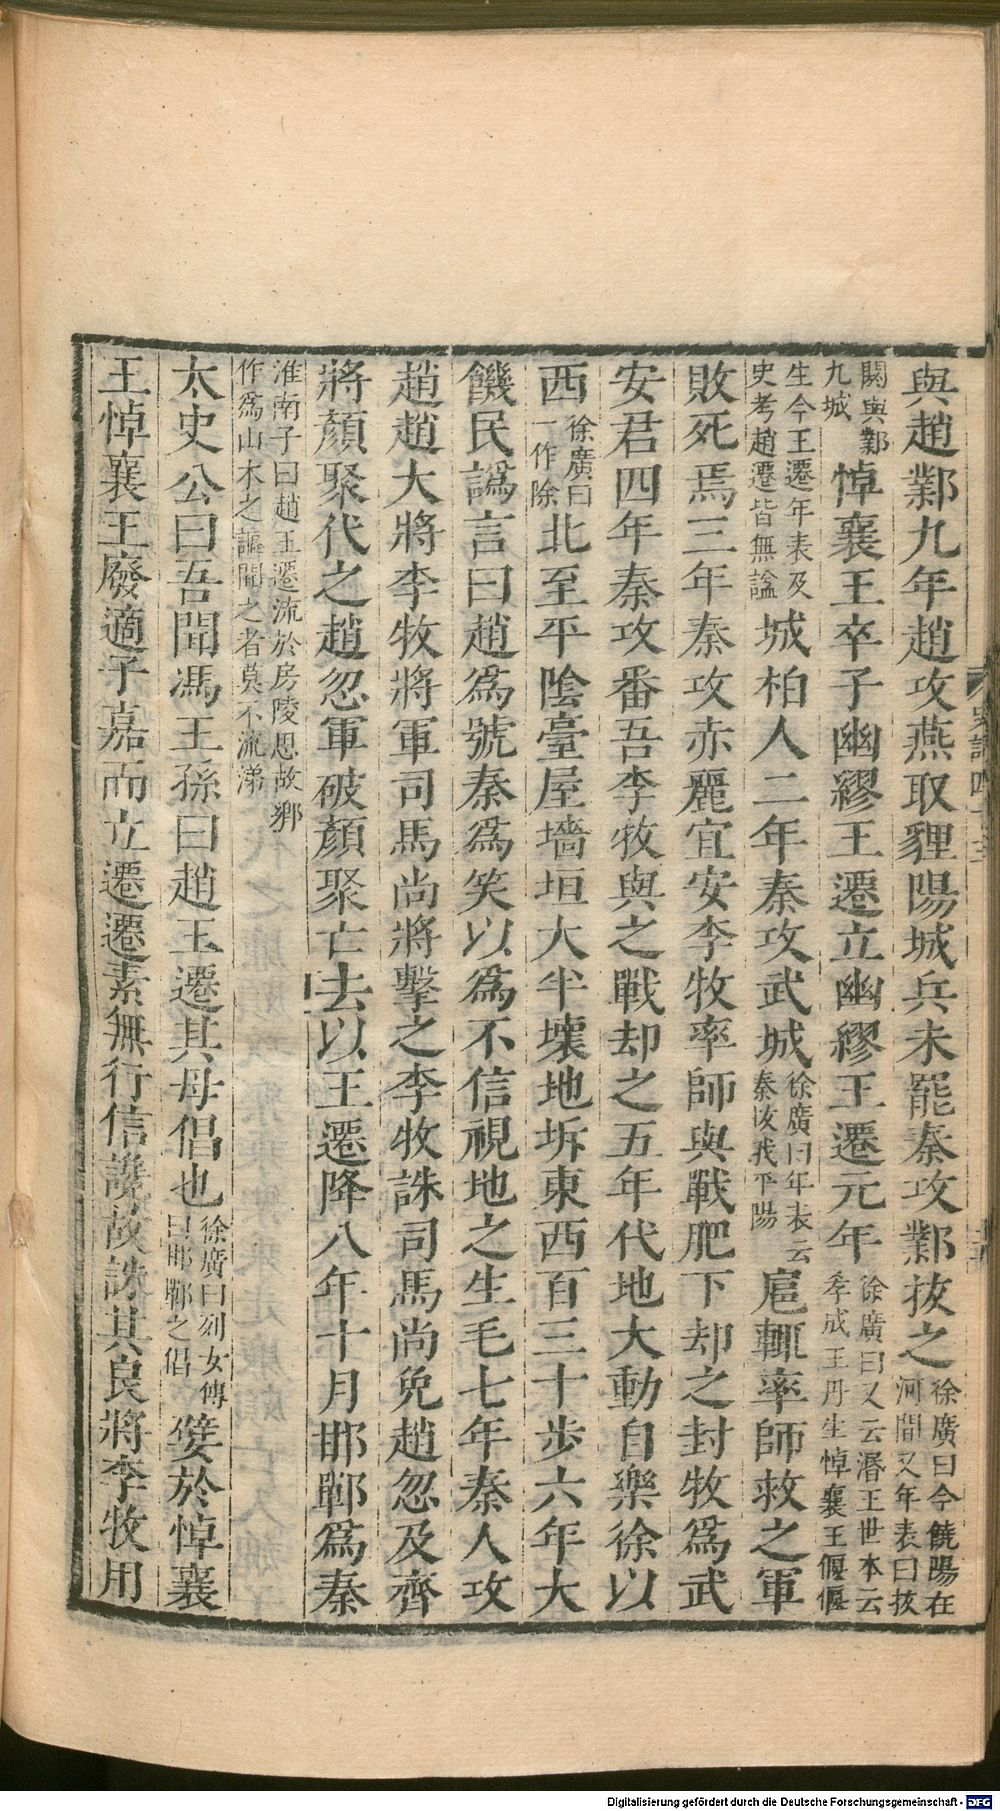 與趙鄴九年趙攻燕取貍陽城兵未罷秦攻鄴拔之徐廣曰今饒陽在河間又年表曰拔
閼與鄴九城悼襄王卒子幽繆王遷立幽繆王遷元年徐廣曰又云湣王世本云孝成王丹生悼襄王偃偃
生今王遷年表及史考趙遷皆無諡城柏人二年秦攻武城徐廣曰年表云秦拔我平陽扈輒率師救之軍
敗死焉三年秦攻赤麗宜安李牧率師與戰肥下却之封牧爲武
安君四年秦攻番吾李牧與之戰却之五年代地大動自樂徐以
西徐廣曰一作除北至平陰臺屋墻垣大半壞地坼東西百三十步六年大
饑民譌言曰趙爲號秦爲笑以爲不信視地之生毛七年秦人攻
趙趙大將李牧將軍司馬尚將擊之李牧誅司馬尚免趙忽及齊
將顏聚代之趙忽軍破顏聚亡去以王遷降八年十月邯鄲爲秦
淮南子曰趙王遷流於房陵思故鄉作爲山木之謳聞之者莫不流涕
太史公曰吾聞馮王孫曰趙王遷其母倡也徐廣曰列女傳曰邯鄲之倡嬖於悼襄
王悼襄王廢適子嘉而立遷遷素無行信讒故誅其良將李牧用
Digitalisierung gefördert durch die Deutsche Forschungsgemeinschaft - DFG